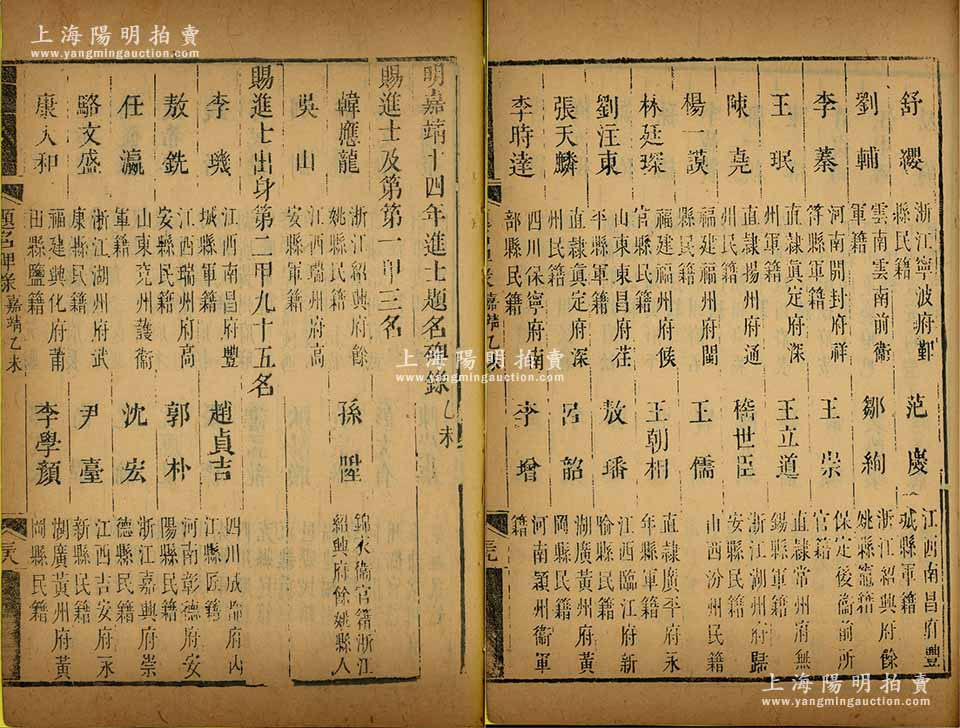 舒纓 浙江寧波府鄞縣民籍 范慶 江西南昌府豐城縣軍籍
劉輔 雲南雲南前衛軍籍 鄒絢 浙江紹興府餘姚縣竈籍
李蓁 河南開封府祥符縣軍籍 王崇 保定後衞前所官籍
王珉 直隸眞定府深州軍籍 王立道 直隸常州府無錫縣軍籍
陳堯 直隸揚州府通州民籍 嵇世臣 浙江湖州府歸安縣民籍
楊一謨 福建福州府閩縣民籍 王儒 山西汾州民籍
林廷琛 福建福州府候官縣民籍 王朝相 直隸廣平府永年縣軍籍
劉汪東 山東東昌府茌平縣軍籍 敖璠 江西臨江府新喻縣民籍
張天麟 直隸眞定府深州民籍 呂韶 湖廣黃州府黃岡縣民籍
李時達 四川保寧府南部縣民籍 李增 河南潁州衞軍籍
嘉靖乙未
明嘉靖十四年進士題名碑錄 乙未
賜進士及第第一甲三名
韓應龍 浙江紹興府餘姚縣民籍 孫陞 錦衣衞官籍浙江紹興府餘姚縣人
吳山 江西瑞州府高安縣軍籍
賜進士出身第二甲九十五名
李璣 江西南昌府豐城縣軍籍 趙貞吉 四川成都府內江縣匠籍
敖銑 江西瑞州府高安縣民籍 郭朴 河南彰德府安陽縣民籍
任瀛 山東兖州護衞軍籍 沈宏 浙江嘉興府崇德縣民籍
駱文盛 浙江湖州府武康縣民籍 尹臺 江西吉安府永新縣民籍
康大和 福建興化府莆田縣鹽籍 李學顏 湖廣黃州府黃岡縣民籍
題名碑錄 嘉靖乙未
上海陽明拍賣
www.yangmingauction.com
上海陽明拍賣
www.yangmingauction.com
上海陽明拍賣
www.yangmingauction.com